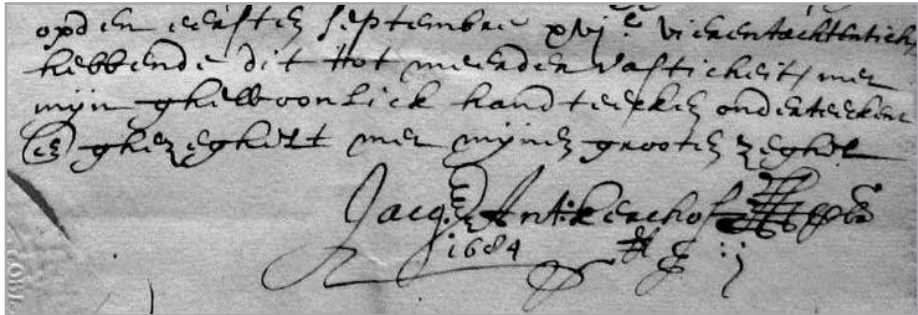 opden eersten septembre xvjc vierentachtentich
hebbende dit tot meerder vasticheit, met
mijn ghewoonlick handteecken onderteeckent
en ghezeghelt met mijnen grooten zeghel
Jacq. Ant. Kerchof
1684